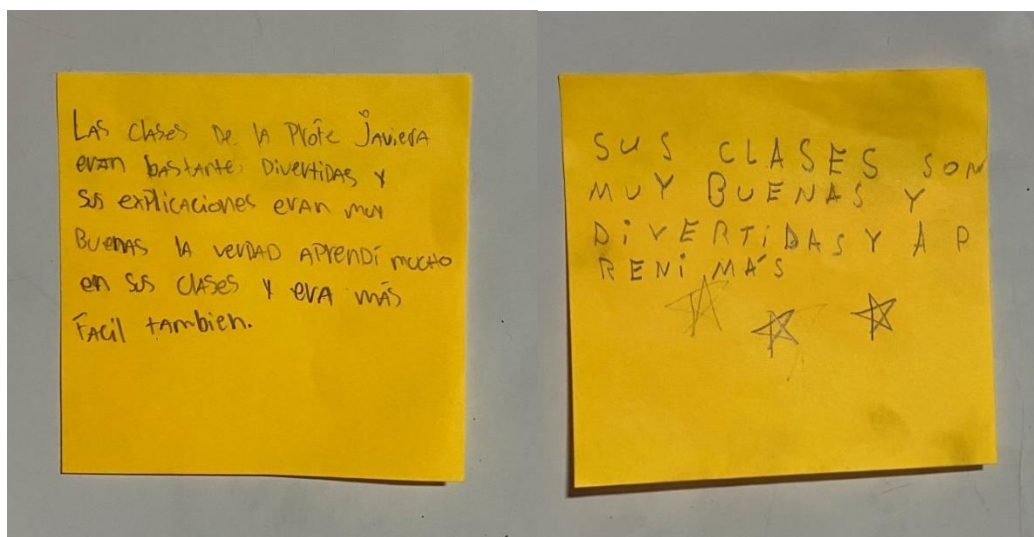 LAS CLASES DE LA Profe JAVIERA
eran bastante DivertiDAS y
Sus explicaciones eran muy
Buenas la verdad APRENDÍ mucho
en sus clases y era más
Facil tambien.
SUS CLASES SON
MUY BUENAS Y
DiVERTiDAS Y A P
RENi MÁS